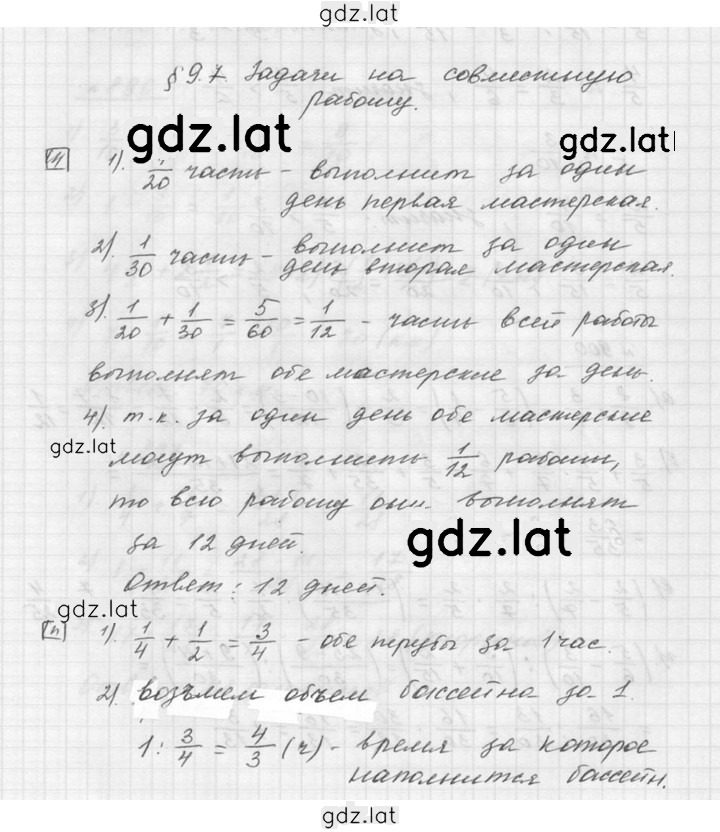 gdz.lat
§ 9.7 Задачи на совместную
работу.
gdz.lat
gdz.lat
1). 1/20 часть - выполнит за один
день первая мастерская.
2). 1/30 часть - выполнит за один
день вторая мастерская.
3). 1/20 + 1/30 = 5/60 = 1/12 - часть всей работы
выполнят обе мастерские за день.
4). т.к. за один день обе мастерские
gdz.lat
могут выполнить 1/12 работы,
то всю работу они выполнят
за 12 дней.
gdz.lat
Ответ: 12 дней.
gdz.lat
1). 1/4 + 1/2 = 3/4 - обе трубы за 1 час.
2). возьмем объем бассейна за 1.
1 : 3/4 = 4/3 (ч) - время за которое
наполнится бассейн.
gdz.lat